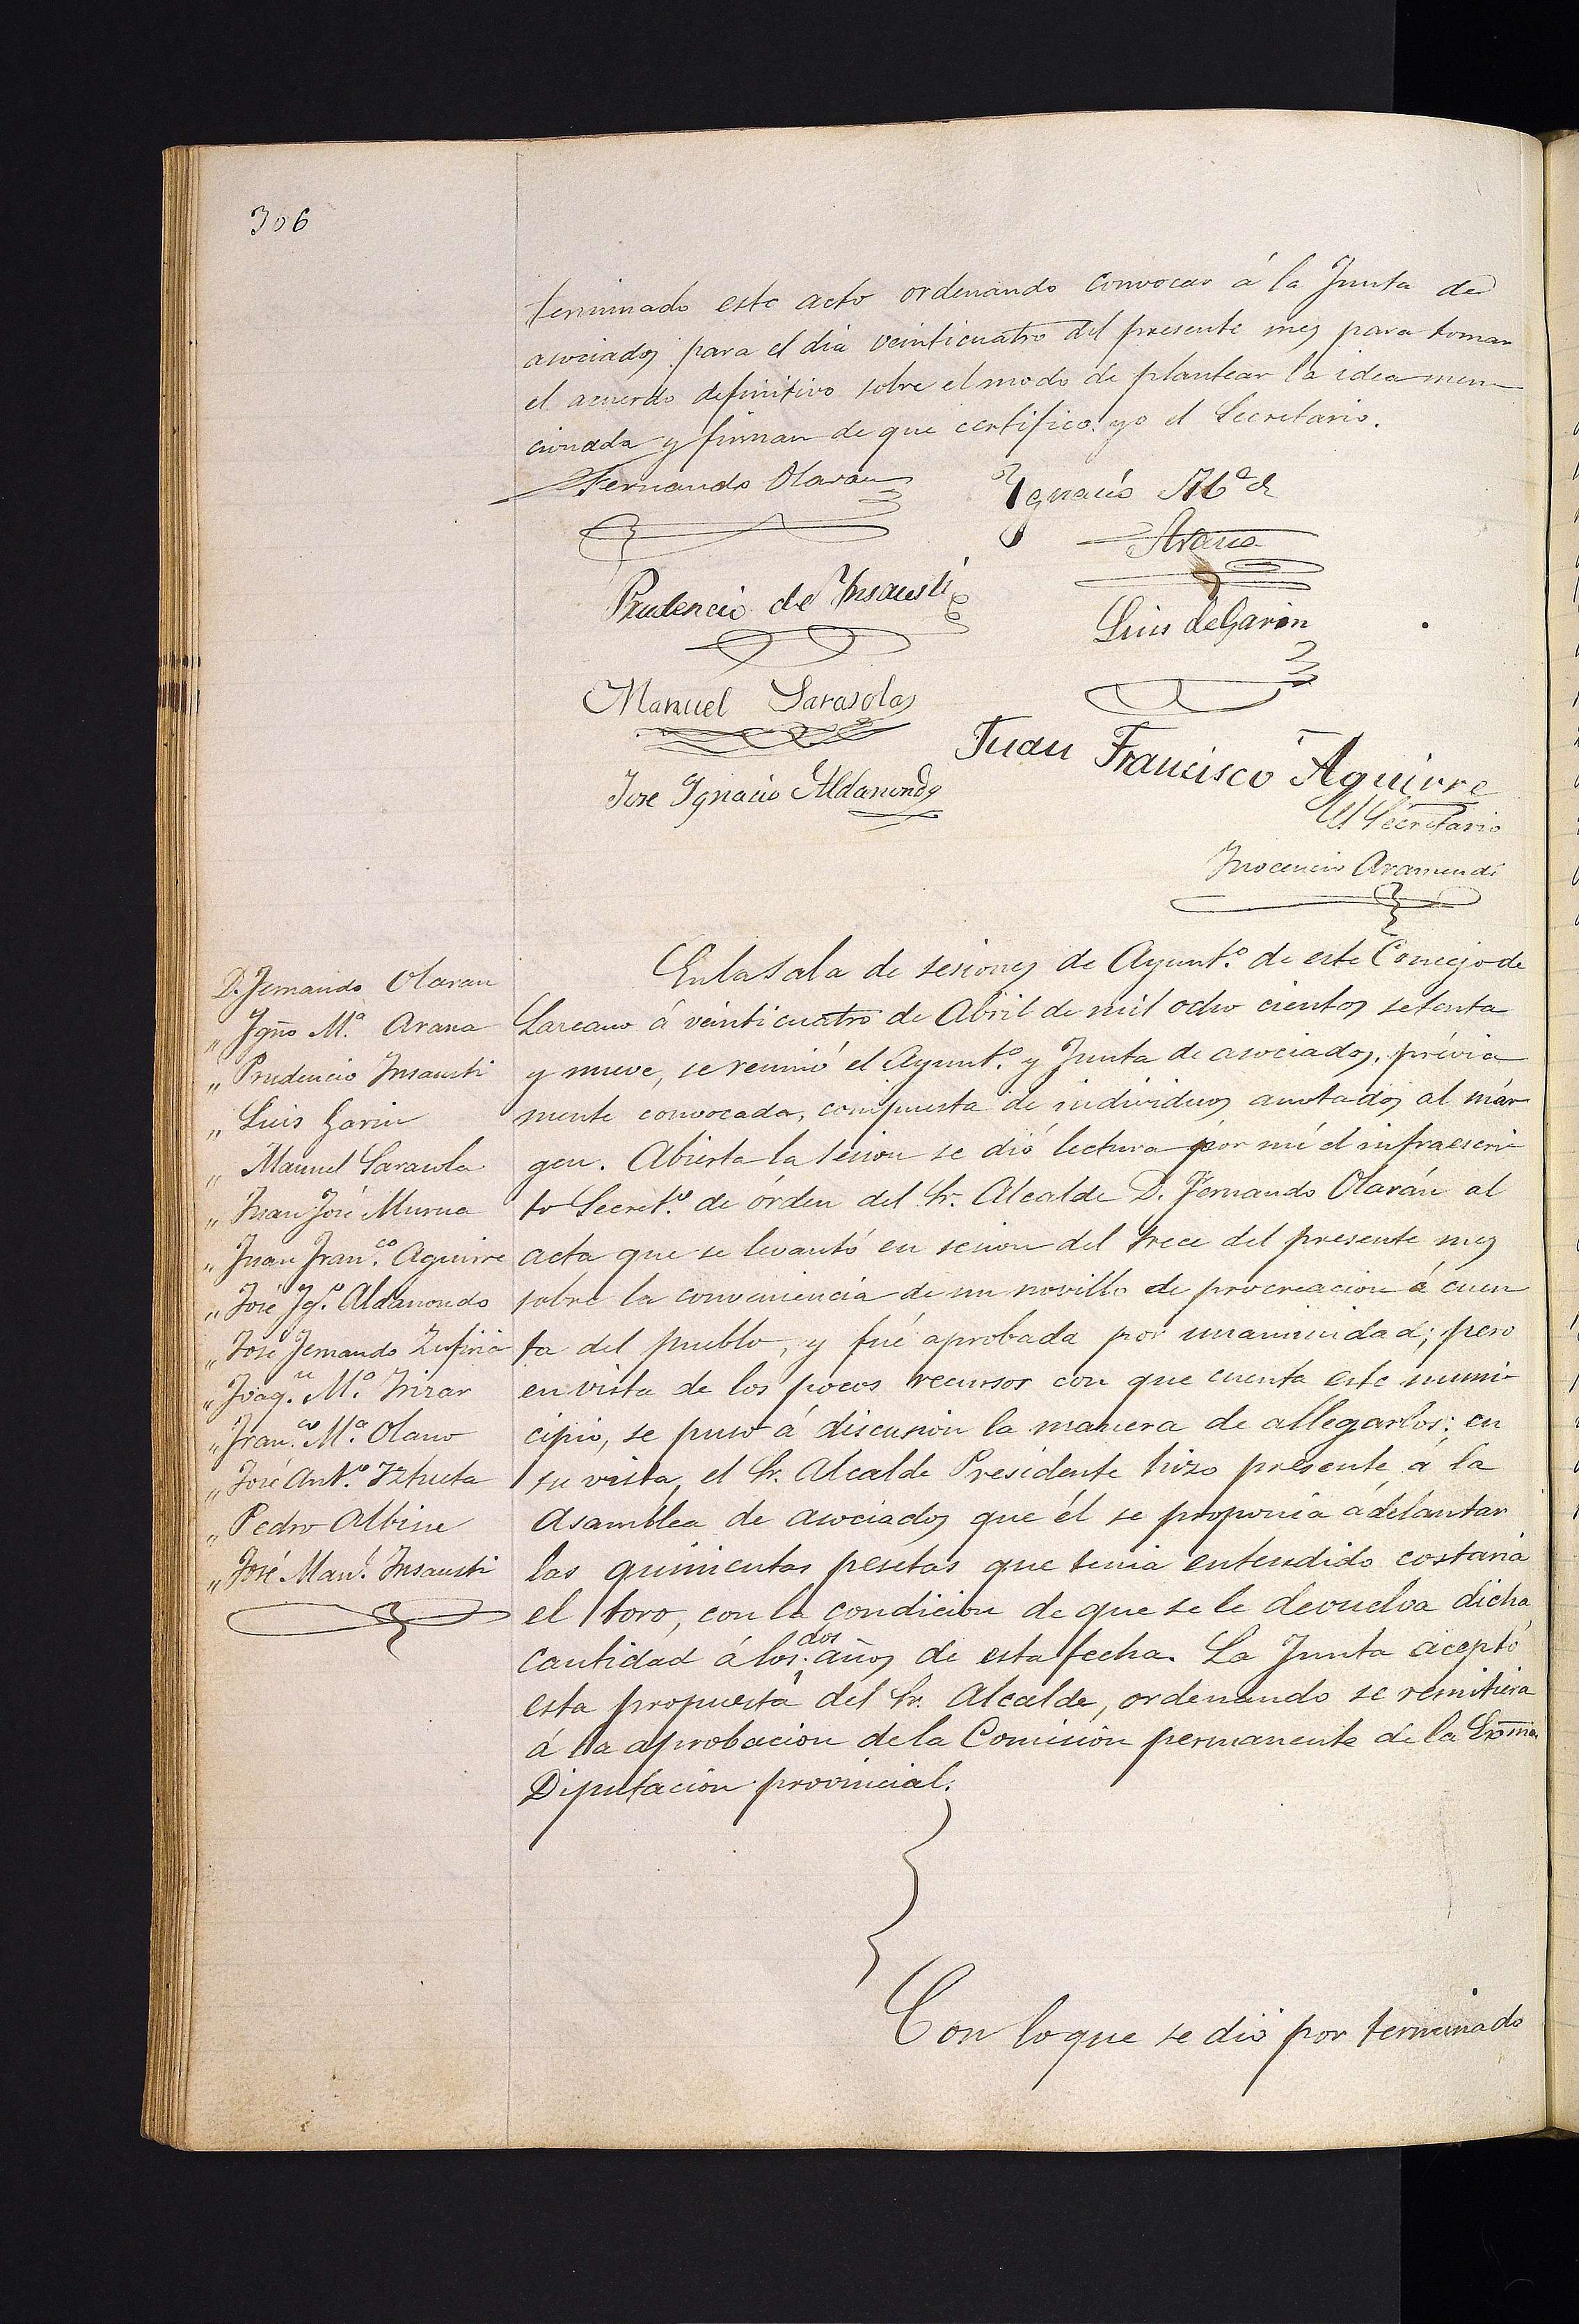 306
terminado este acto ordenando convocar á la Junta de
asociados para el dia veinticuatro del presente mes para tomar
el acuerdo definitivo sobre el modo de plantear la idea men
cionada y firman de que certifico yo el Secretario.
Fernando Olaran
Ygnacio Mª de
Arana
Prudencio de Ynsausti
Luis de Garin
Manuel Sarasola
Juan Francisco Aguirre
Jose Ygnacio Aldanondo
El Secretario
Ynocencio Aramendi
D. Fernando Olaran
„ Ygno Mª Arana
„ Prudencio Insausti
„ Luis Garin
„ Manuel Sarasola
„ Juan José Murua
„ Juan Fran.co Aguirre
„ José Yg.o Aldanondo
„ José Fernando Zufiria
„ Joaq.n Mª Irizar
„ Fran.co Mª Olano
„ José Ant.o Iztueta
„ Pedro Albisu
„ José Man.l Insausti
En la Sala de sesiones de Ayunt.o de este Concejo de
Lazcano á veinticuatro de Abril de mil ocho cientos setenta
y nueve, se reunió el Ayunt.o y Junta de asociados, prévia
mente convocada, compuesta de individuos anotados al már
gen. Abierta la sesion se dió lectura por mí el infraescri
to Secret.o de órden del Sr. Alcalde D. Fernando Olarán al
acta que se levantó en sesion del trece del presente mes
sobre la conveniencia de un novillo de procreacion á cuen
ta del pueblo, y fué aprobada por unanimidad; pero
en vista de los pocos recursos con que cuenta este muni
cipio, se puso á discusion la manera de allegarlos; en
su vista, el Sr. Alcalde Presidente hizo presente á la
Asamblea de asociados que él se proponia adelantar
las quinientas pesetas que tenia entendido costaria
el toro, con la condicion de que se le devuelva dicha
cantidad á los dos años de esta fecha. La Junta aceptó
esta propuesta del Sr. Alcalde, ordenando se remitiera
á la aprobacion de la Comision permanente de la Exma.
Diputacion provincial.
Con lo que se dió por terminado